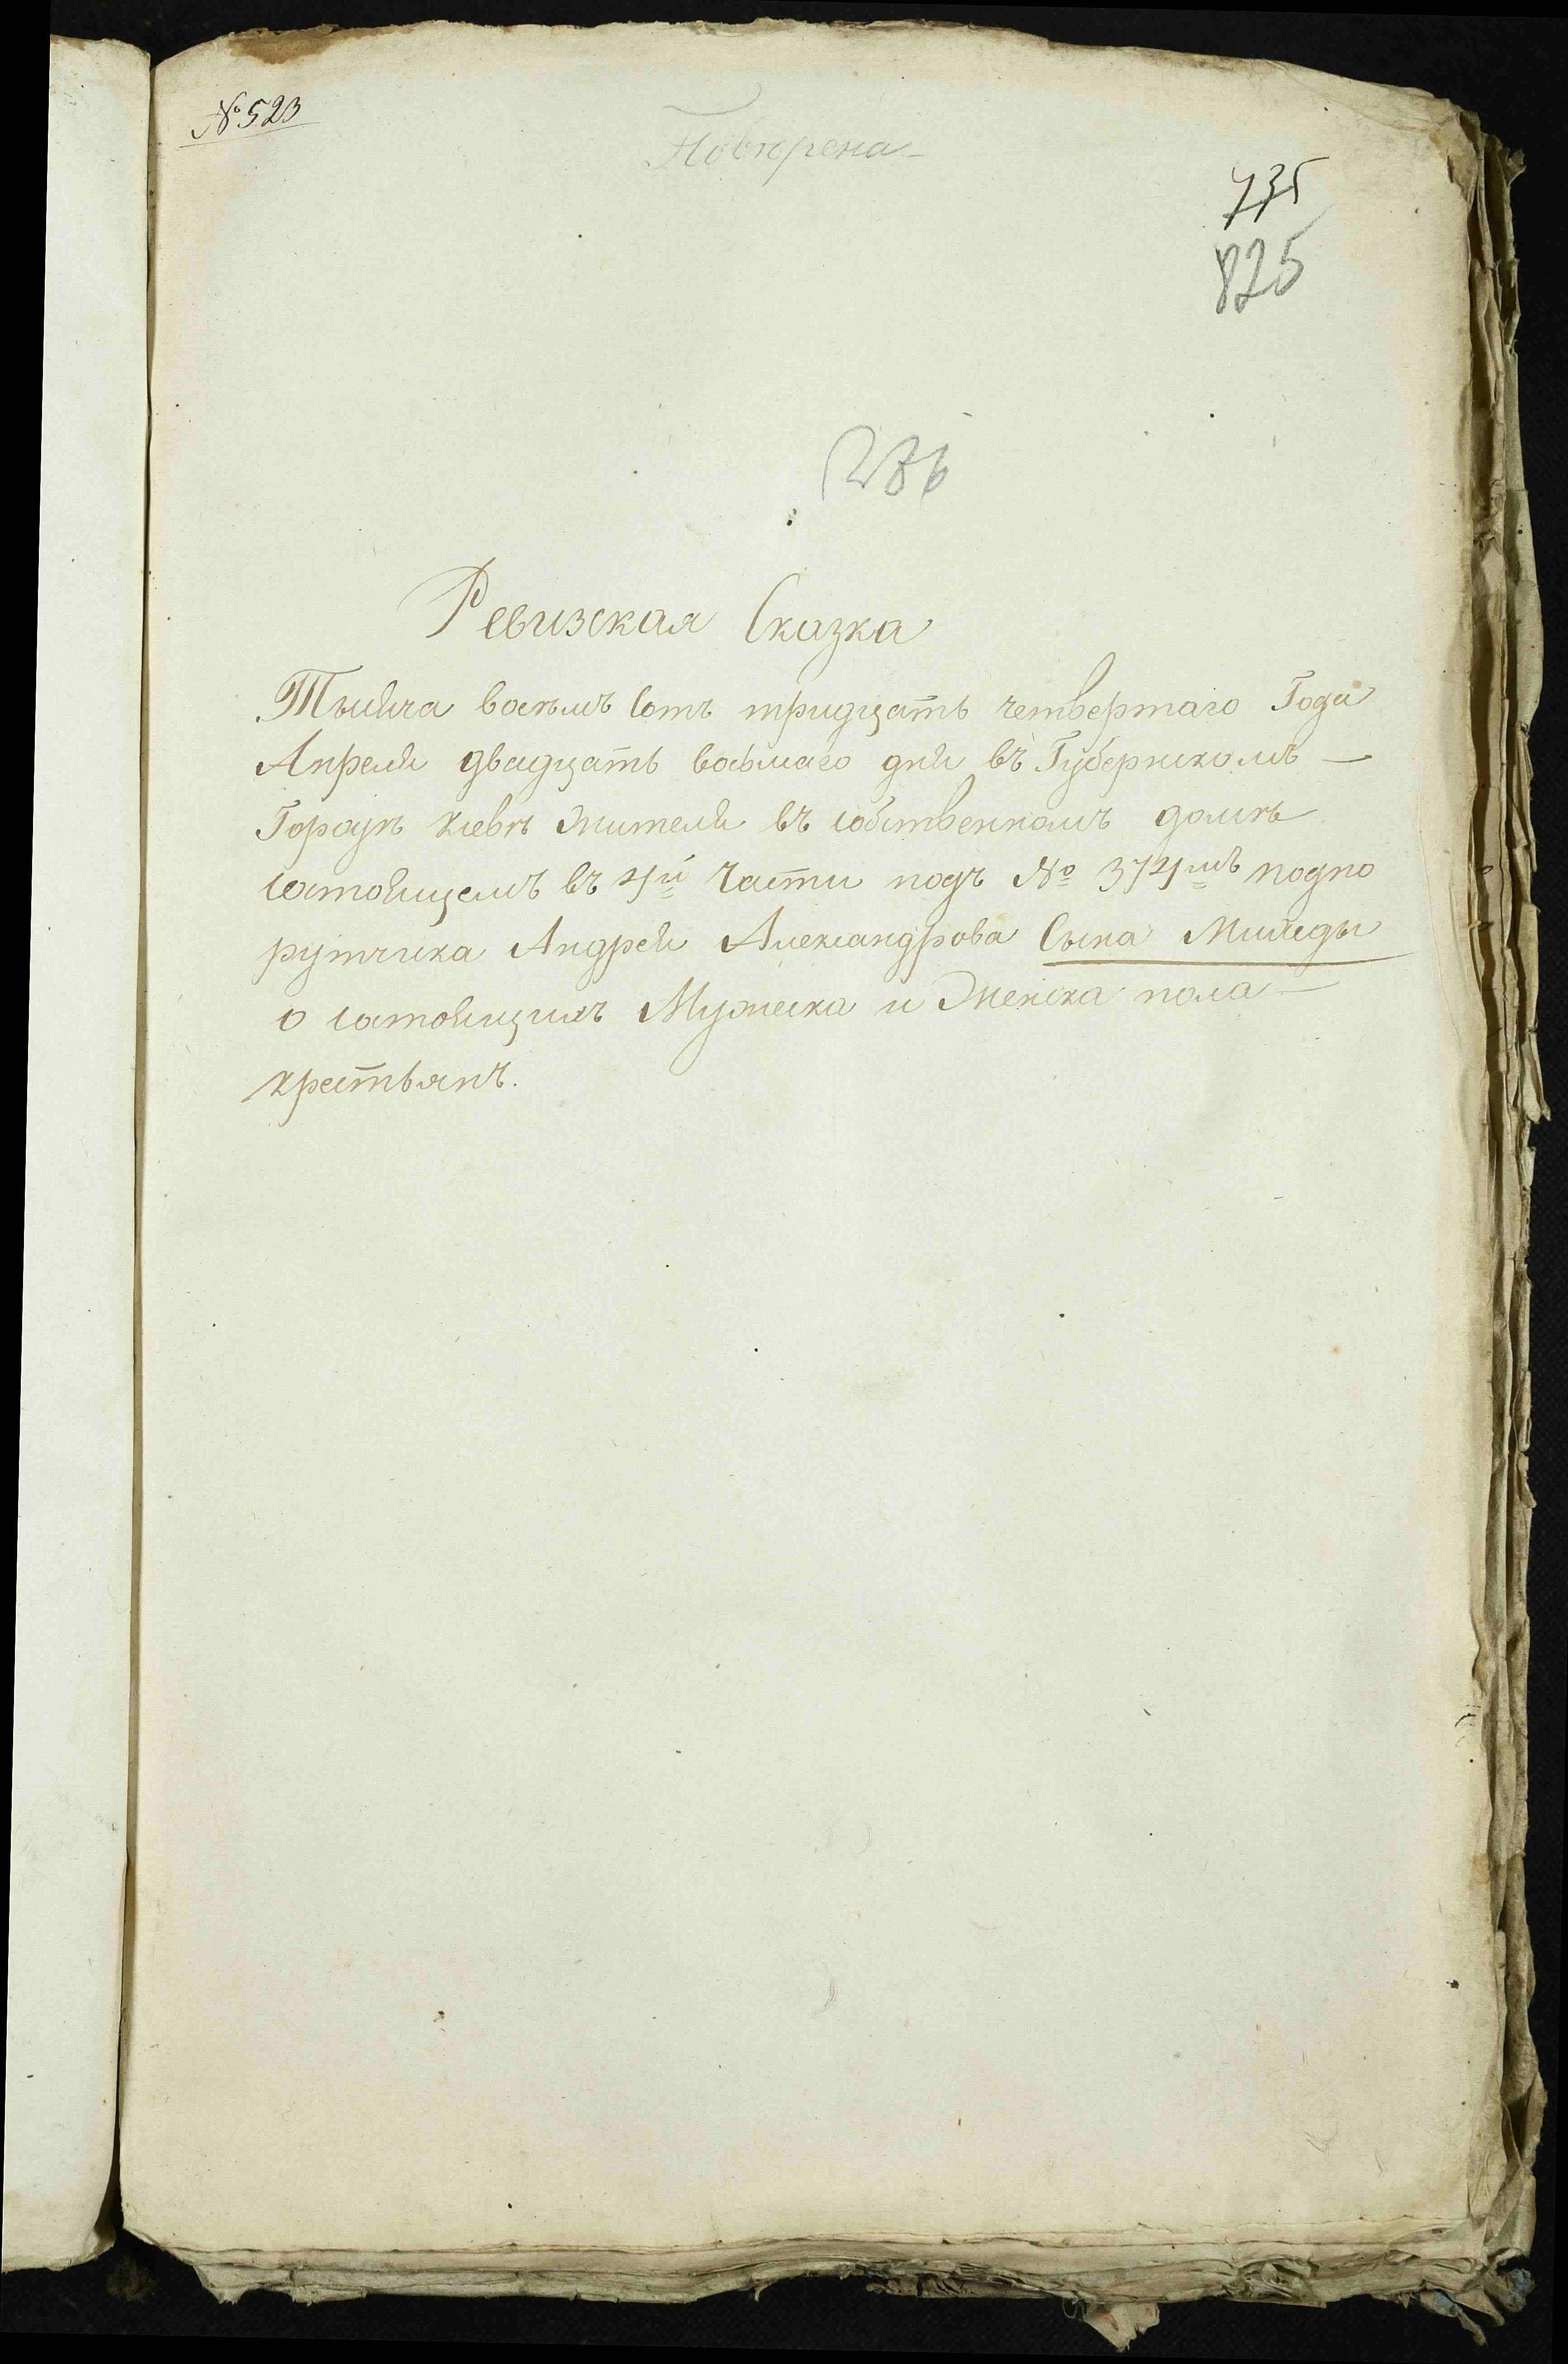 № 523
Повѣрена
735
825
286
Ревизская Сказка
Тысяча восѣмъ Сотъ тридцать четвертаго Года
Апреля двадцать восьмаго дня въ Губернскомъ —
Городѣ Киевѣ Жителя въ собственномъ домѣ
состоящемъ въ 4й Части подъ № 374мъ подпо
рутчика Андрея Александрова Сына
о состоящихъ Мужеска и Женска пола —
крестьянъ.